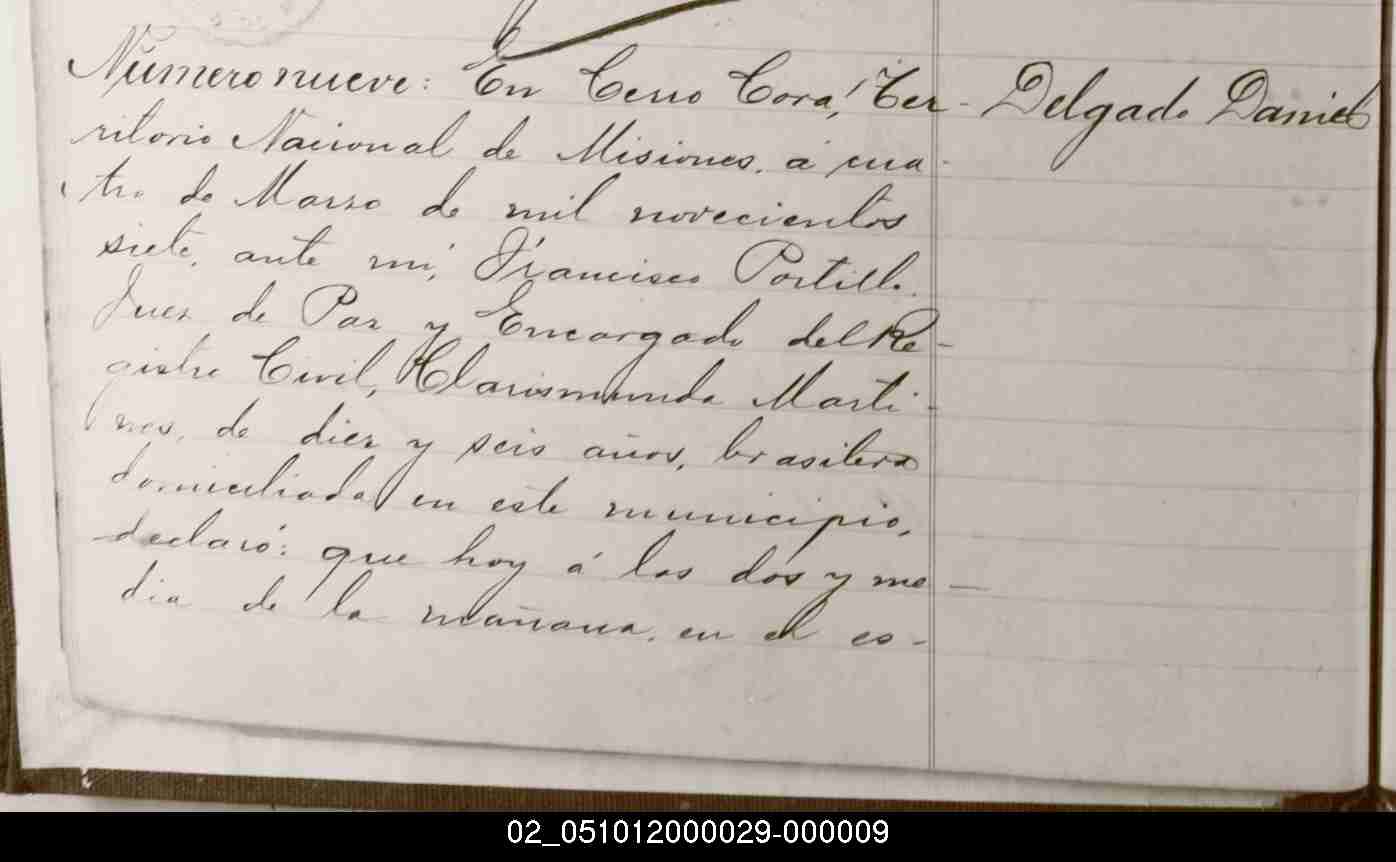 Número nueve: En Cerro Corá, Ter-
Delgado Daniel
ritorio Nacional de Misiones, á cua-
tro de Marzo de mil novecientos
siete, ante mi, Francisco Portillo
Juez de Paz y Encargado del Re-
gistro Civil, Clarismunda Marti-
nes, de diez y seis años, brasilera
domiciliada en este municipio,
declaró: que hoy á las dos y me-
dia de la mañana, en el es-
02_051012000029-000009